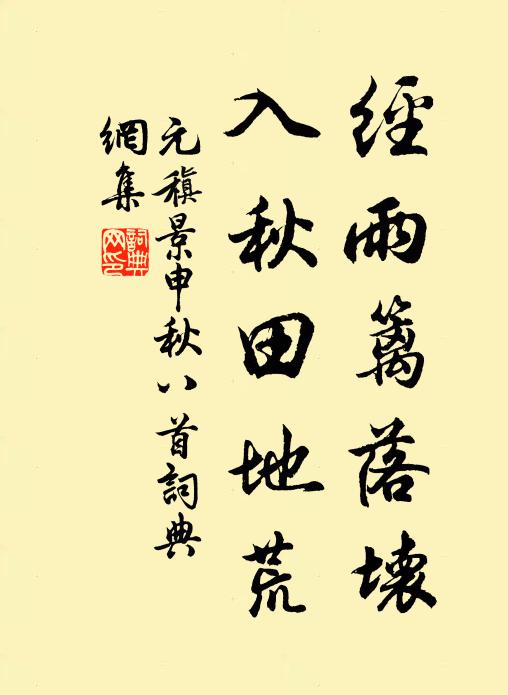 經雨籬落壞
入秋田地荒
元稹景申秋八首詞典
網集
詞典
网印